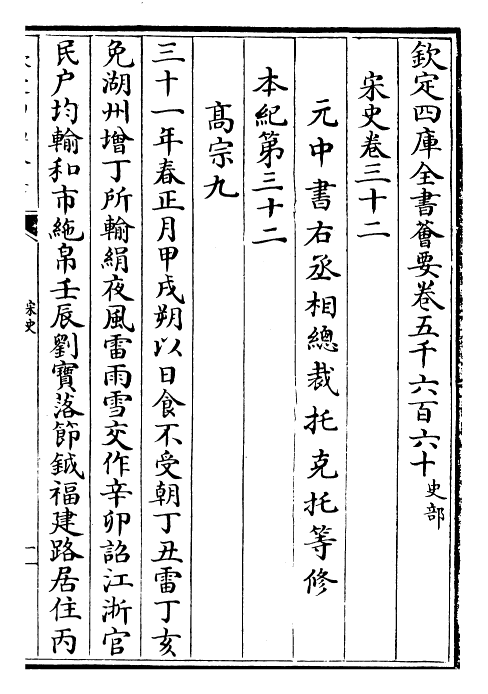 欽定四庫全書薈要卷五千六百六十史部
宋史卷三十二
元中書右丞相總裁托克托等修
本紀第三十二
高宗九
三十一年春正月甲戌朔以日食不受朝丁丑雷丁亥
免湖州增丁所輸絹夜風雷雨雪交作辛卯詔江浙官
民户均輸和市絁帛壬辰劉寶落節鉞福建路居住丙
宋史